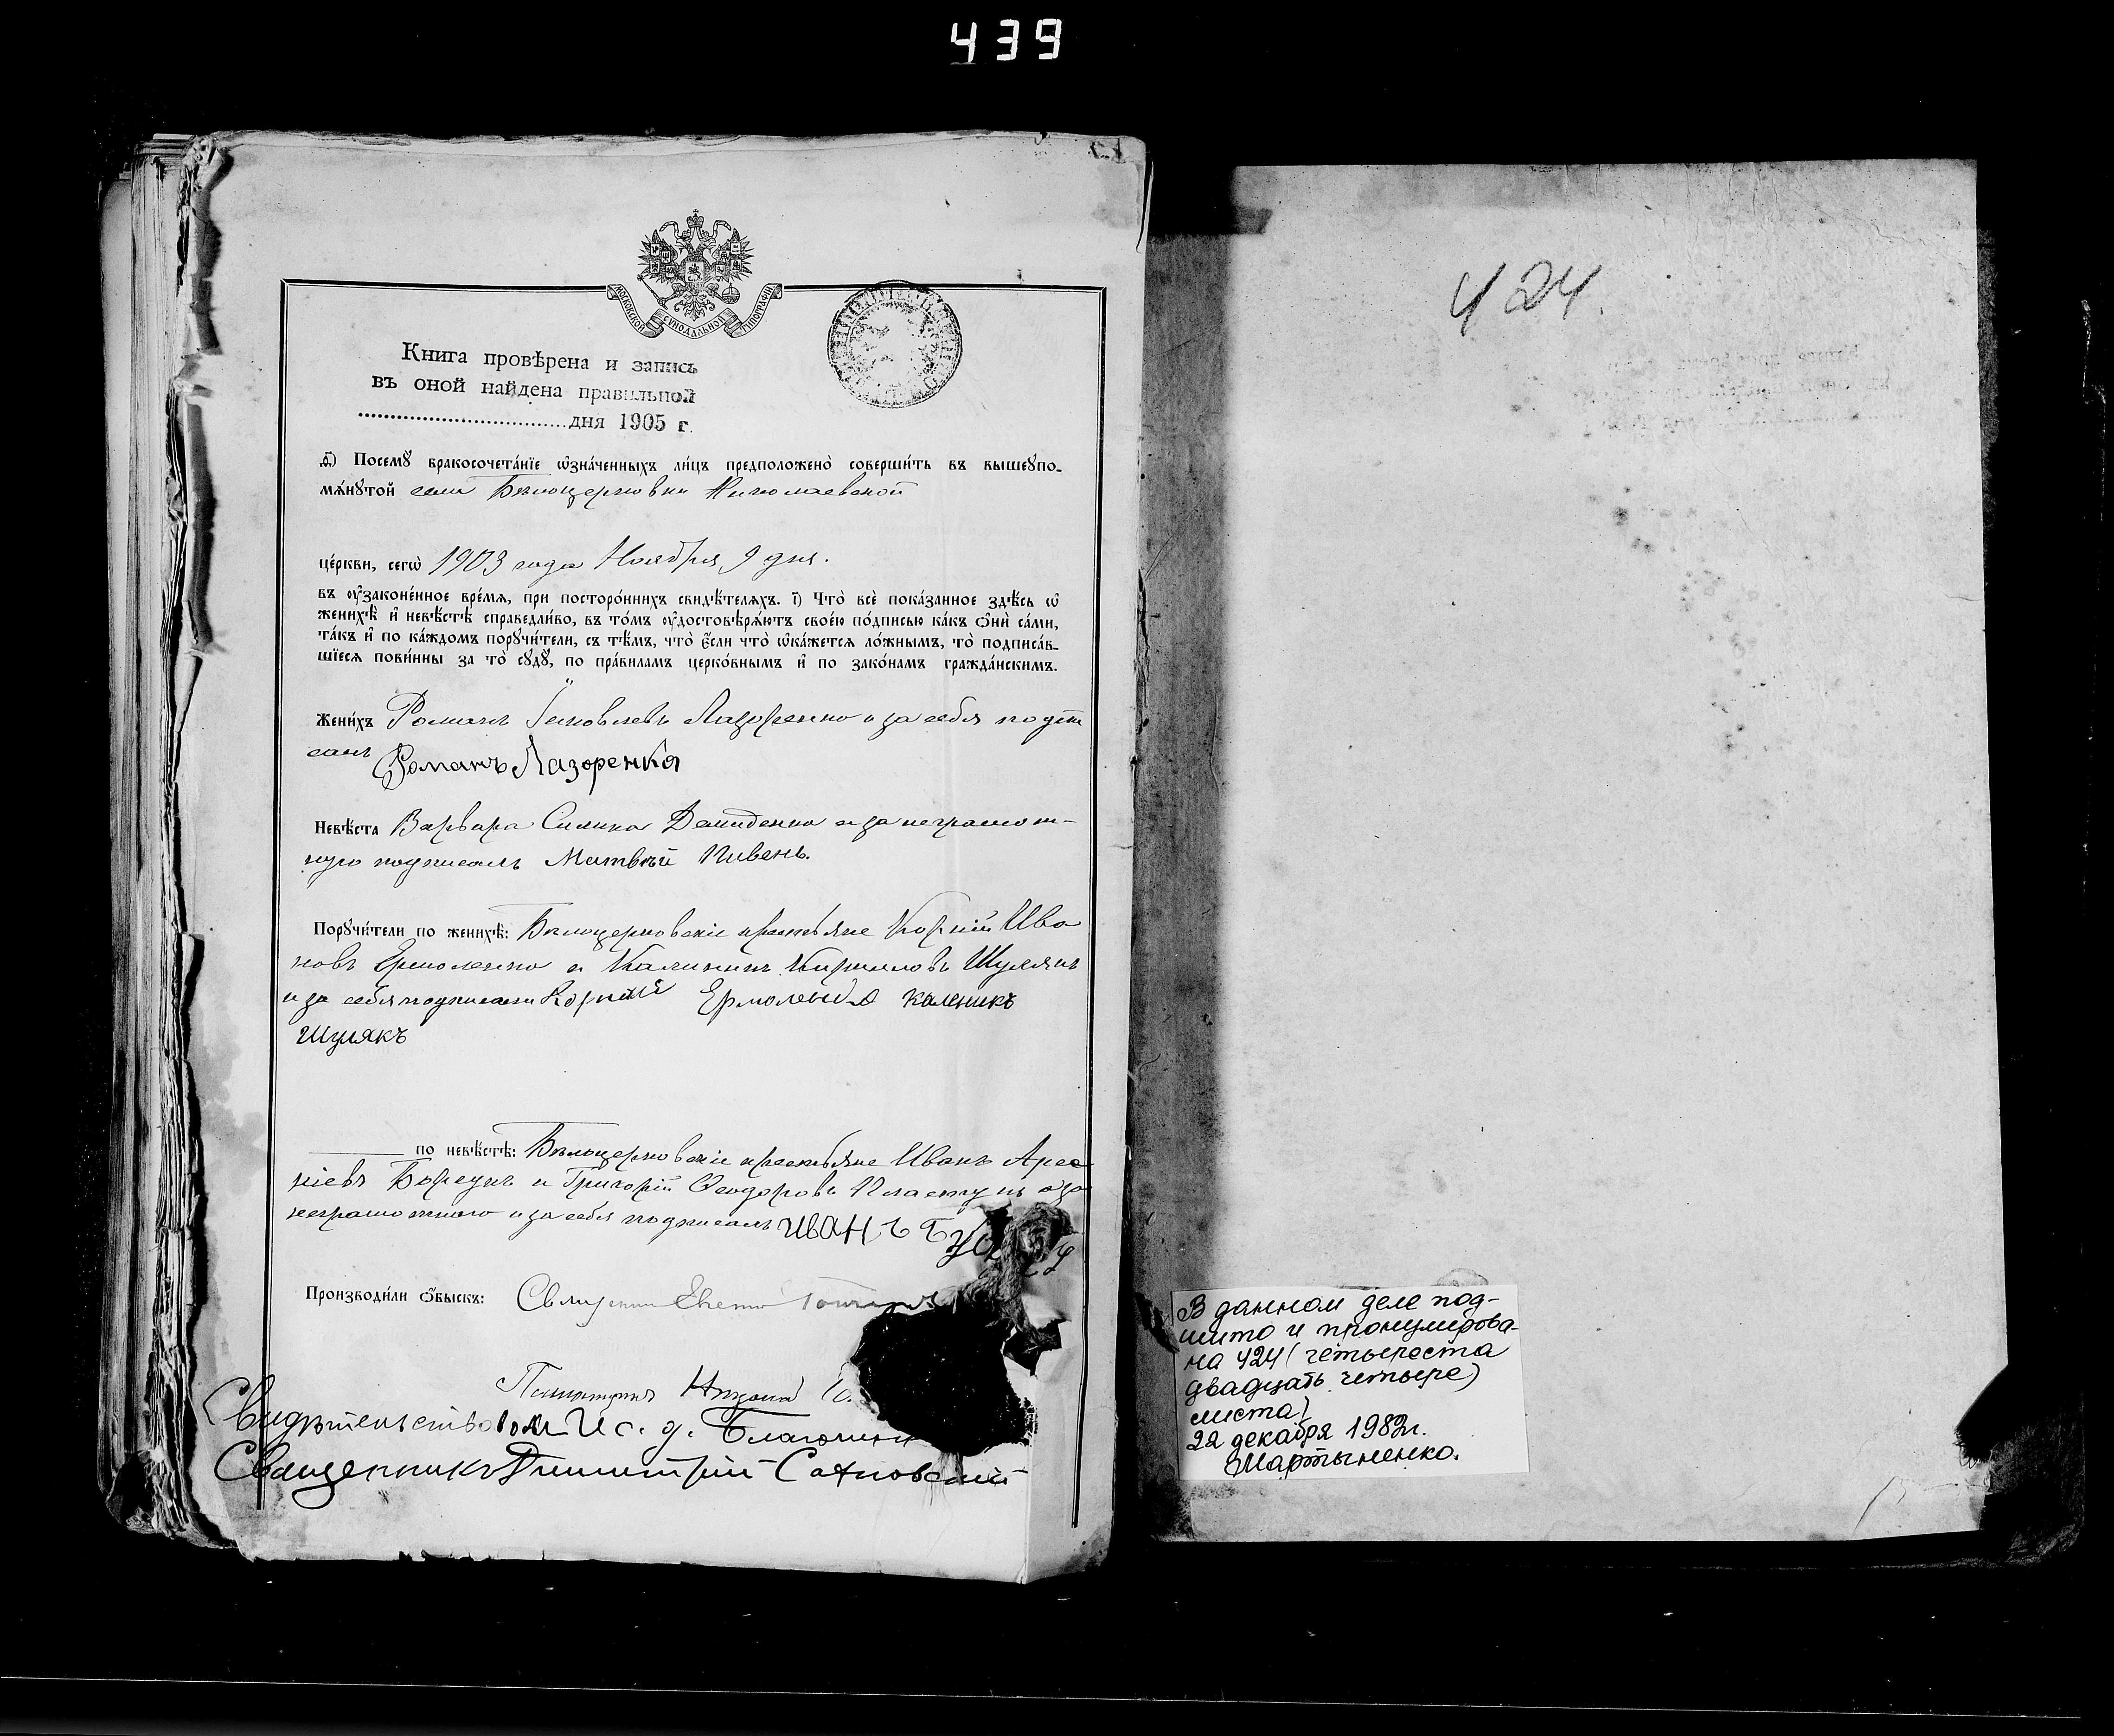 439
МОСКОВСКОЙ СѴНОДАЛЬНОЙ ТИПОГРАФІИ
Книга провѣрена и запись
въ оной найдена правильной
дня 1905 г.
Посемꙋ̀ бракосочета́нїе ѡ҆зна́ченныхъ ли́цъ предположено̀ соверши́ть въ вышеꙋпо-
мѧ́нꙋтой села Бѣлоцерковки Николаевской
це́ркви, сегѡ̀ 1903 года Ноября 9 дня.
въ ᲂу҆зако́ненное вре́мѧ, при посторо́ннихъ свидѣ́телѧхъ. і҃) Что̀ всѐ пока́занное здѣ́сь ѡ҆
женихѣ̀ и҆ невѣ́стѣ справедли́во, въ то́мъ ᲂу҆достовѣрѧ́ютъ свое́ю по́дписью ка́къ ѻ҆нѝ са́ми,
та́къ и҆ по ка́ждомъ порꙋчи́тели, съ тѣ́мъ, что̀ є҆́сли что̀ ѡ҆ка́жетсѧ ло́жнымъ, то̀ подписа́в-
шїесѧ пови́нны за то̀ сꙋдꙋ̀, по пра́виламъ церко́внымъ и҆ по зако́намъ гражда́нскимъ.
Жени́хъ Романъ Іаковлевъ Лазоренко и за себя подпи
салъ Романъ Лазоренка
Невѣ́ста Варвара Силина Демиденко а за неграмот-
ную подписалъ Матвѣй Пивень.
Порꙋчи́тели по женихѣ̀: Бѣлоцерковскіе крестьяне Корній Ива
новъ Ермоленко и Калиникъ Кириловъ Шулякъ
и за себя подписали Корній Ермоленко каленикъ
Шулякъ
по невѣ́стѣ: Бѣлоцерковскіе крестьяне Иванъ Арсе
ніевъ и Григорій Ѳеодоровъ Пластунъ а за
неграмотного и за себя подписалъ Иванъ
Производи́ли ѻ҆́быскъ: Священникъ
Псаломщикъ
Свидѣтельствовалъ И. с. д. Благочин
Священникъ Димитрій Сахновскій
424.
В данном деле под-
шито и пронумерова-
на 424 (четыреста
двадцать четыре)
листа)
22 декабря 1982г.
Мартыненко.